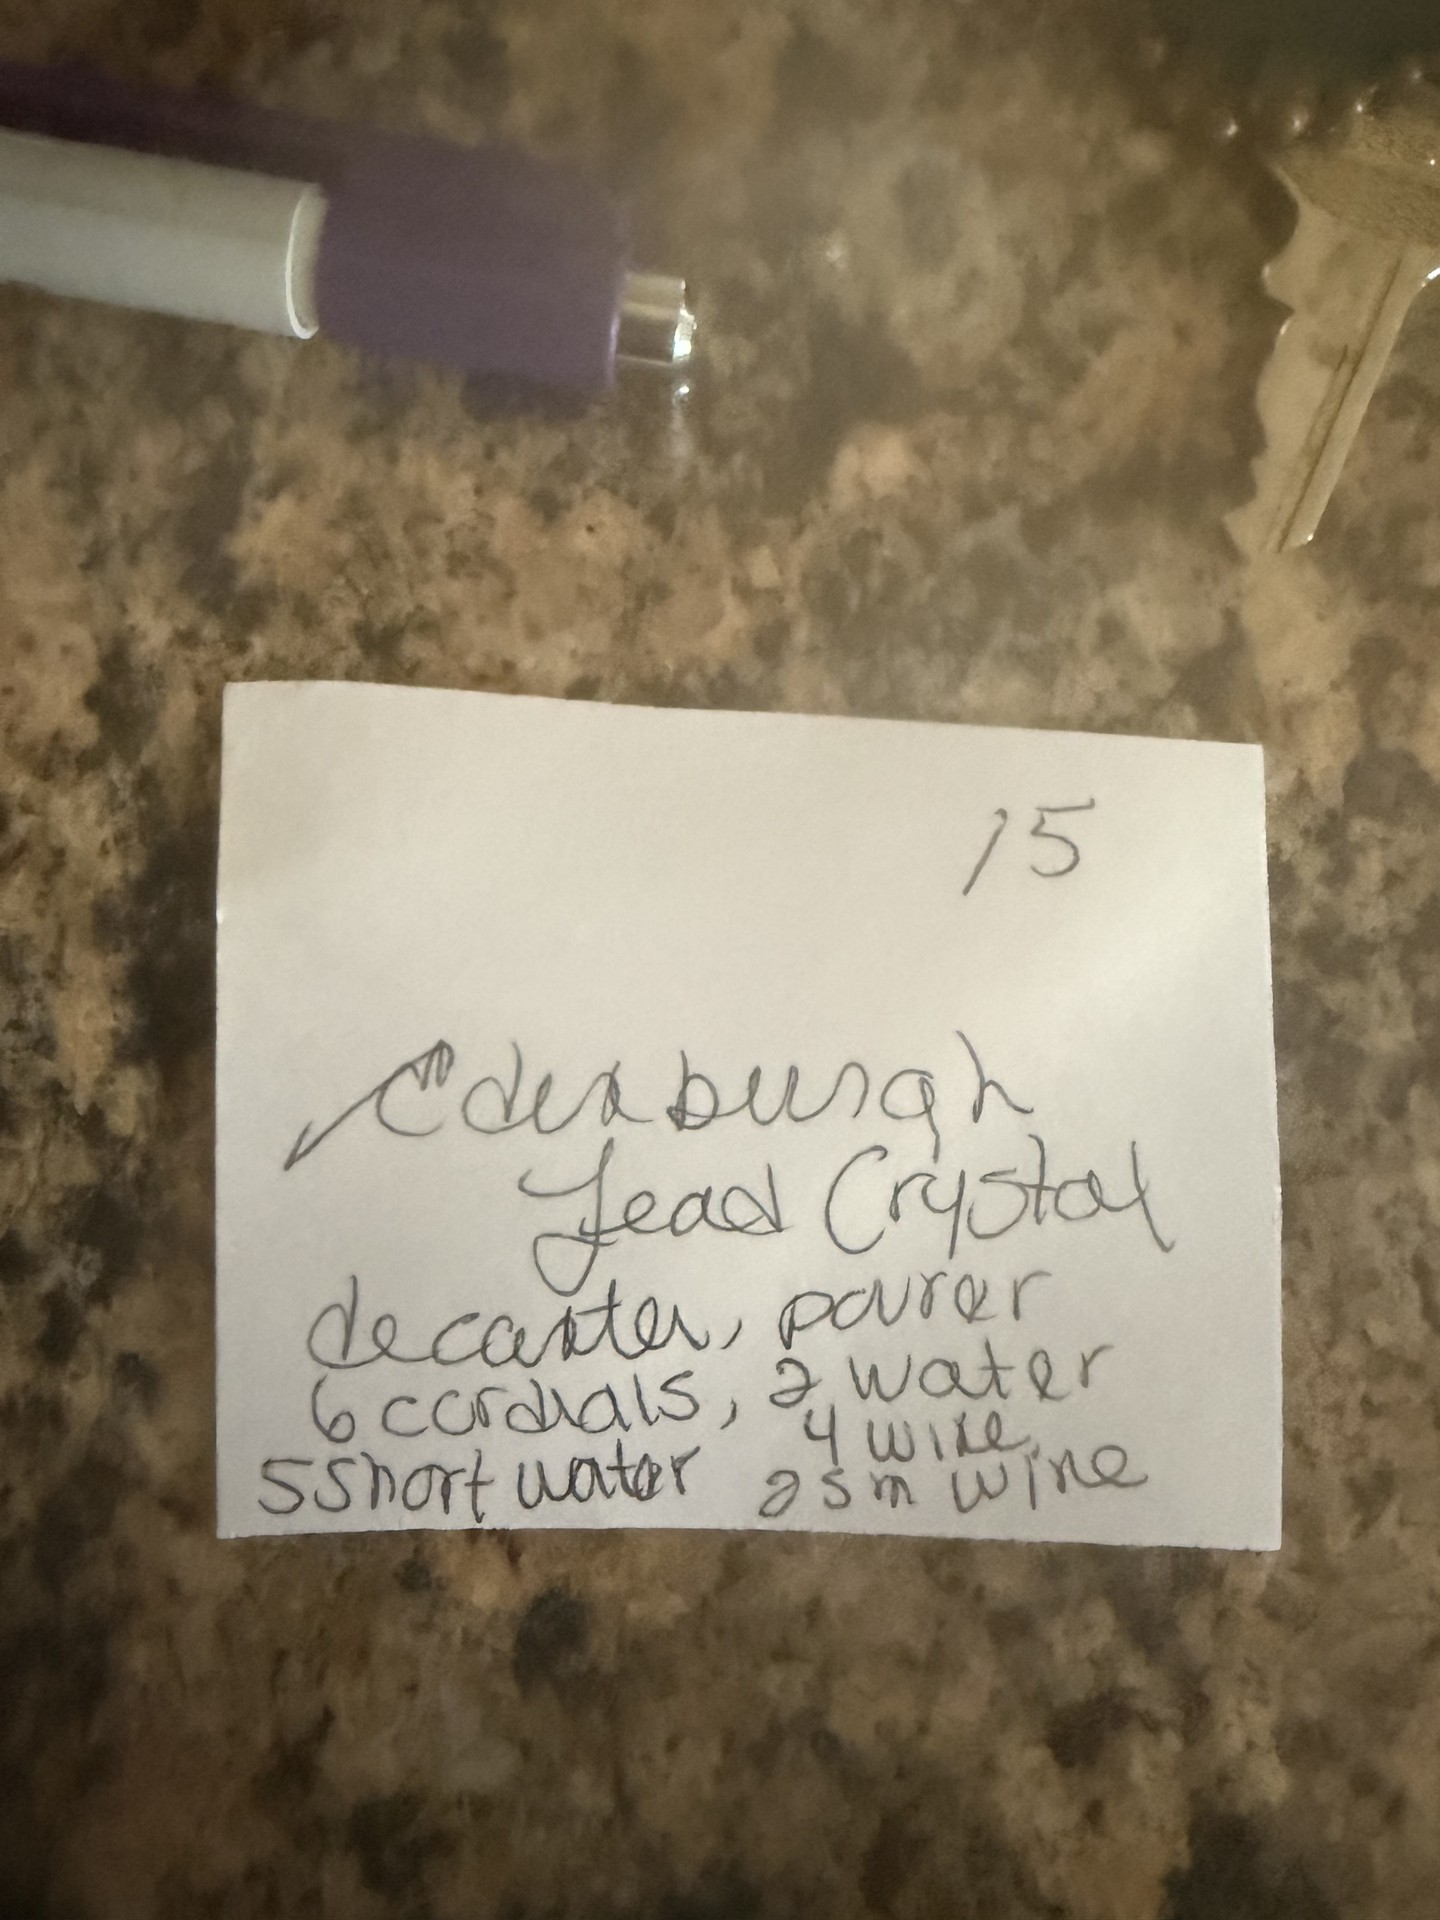 15
Edenburgh
Lead Crystal
decanter, pourer
6 cordials, 2 water
4 wine
5 short water 2 sm wine